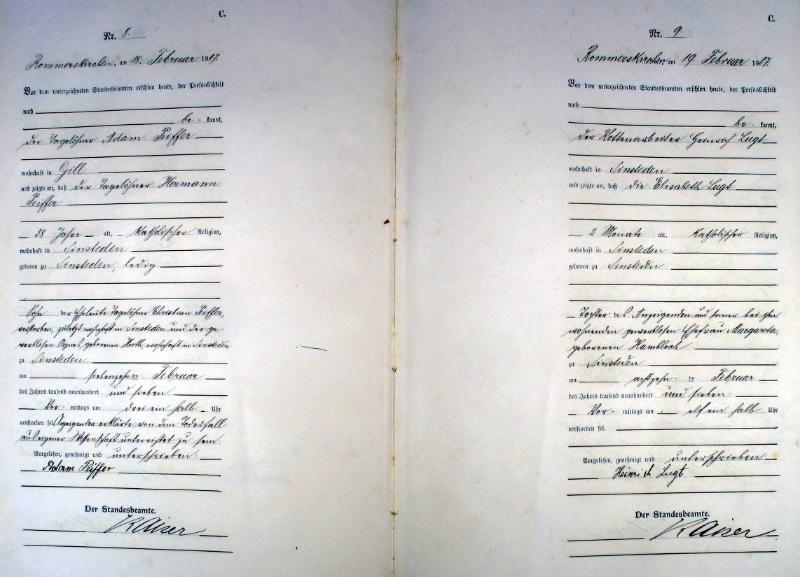 C.
Nr. 8.
Rommerskirchen, am 18. Februar 1907.
Vor dem unterzeichneten Standesbeamten erschien heute, der Persönlichkeit
nach
be- kannt,
der Tagelöhner Adam Piffer
wohnhaft in Gill
und zeigte an, daß der Tagelöhner Hermann
Piffer
38 Jahre alt, katholischer Religion,
wohnhaft in Sinsteden
geboren zu Sinsteden, ledig
Sohn der Eheleute Tagelöhner Christian Piffer,
verstorben, zuletzt wohnhaft in Sinsteden und der ge-
werblosen Agnes, geborenen wohnhaft in Sinsteden
zu Sinsteden
am siebenzehn Februar
des Jahres tausend neunhundert und sieben
Vor- mittags um drei ein halb Uhr
verstorben sei. Anzeigender erklärte von dem Todesfall
aus eigener Wissenschaft unterrichtet zu sein
Vorgelesen, genehmigt und unterschrieben:
Adam Piffer
Der Standesbeamte.
Kaiser
C.
Nr. 9
Rommerskirchen, am 19 Februar 1907.
Vor dem unterzeichneten Standesbeamten erschien heute, der Persönlichkeit
nach
be- kannt,
der Rottenarbeiter Heinrich Lugt
wohnhaft in Sinsteden
und zeigte an, daß die Elisabeth Lugt
2 Monate alt, katholischer Religion,
wohnhaft in Sinsteden
geboren zu Sinsteden
Tochter des Anzeigenden und seiner bei ihm
wohnenden gewerblosen Ehefrau Margareta,
geborenen Hambloch
zu Sinsteden
am achtzehn Februar
des Jahres tausend neunhundert und sieben
Vor- mittags um elf ein halb Uhr
verstorben sei.
Vorgelesen, genehmigt und unterschrieben
Heinrich Lugt
Der Standesbeamte.
Kaiser